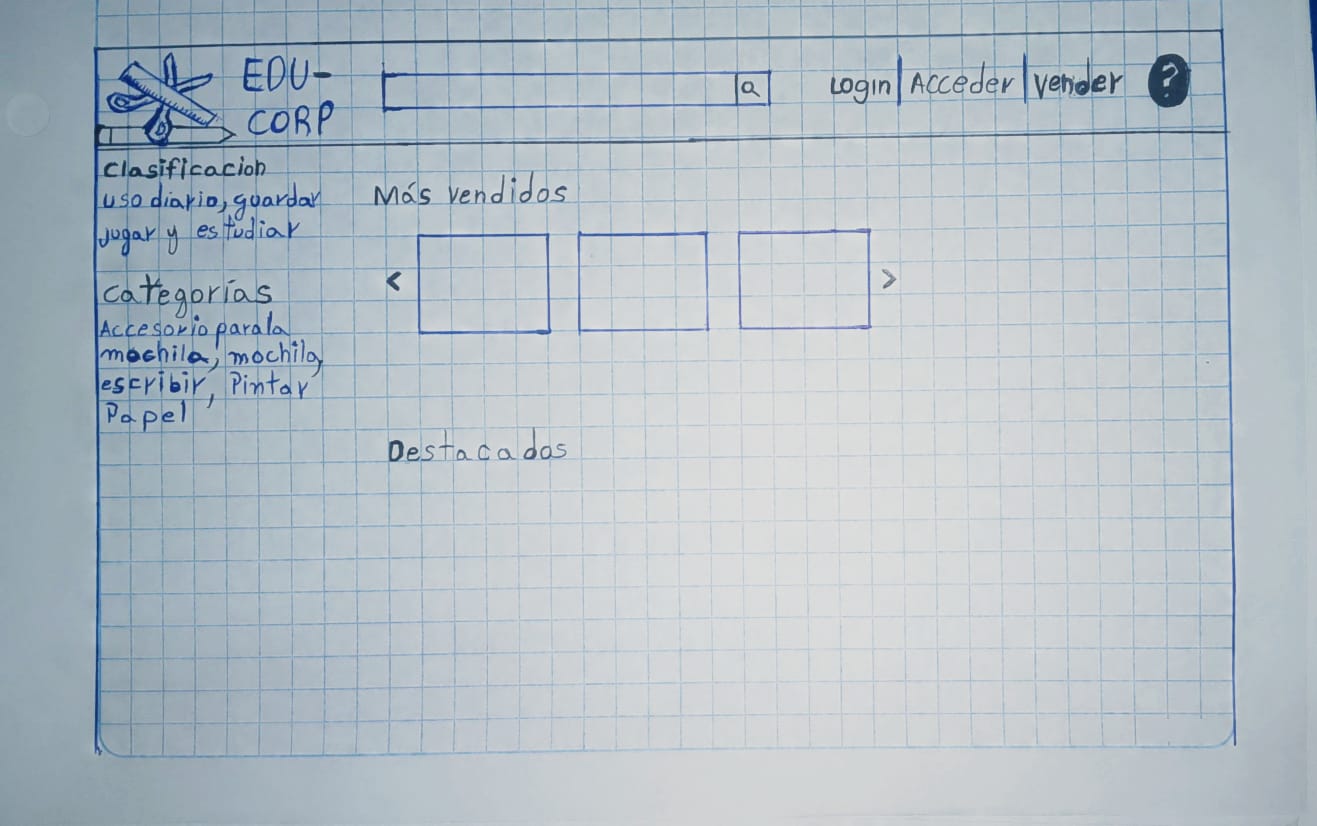 EDU-
CORP
a
Login | Acceder | Vender ?
Clasificacion
uso diario, guardar
Jugar y estudiar
Categorías
Accesorio para la
mochila, mochila
escribir, Pintar
Papel
Más vendidos
< >
Destacados